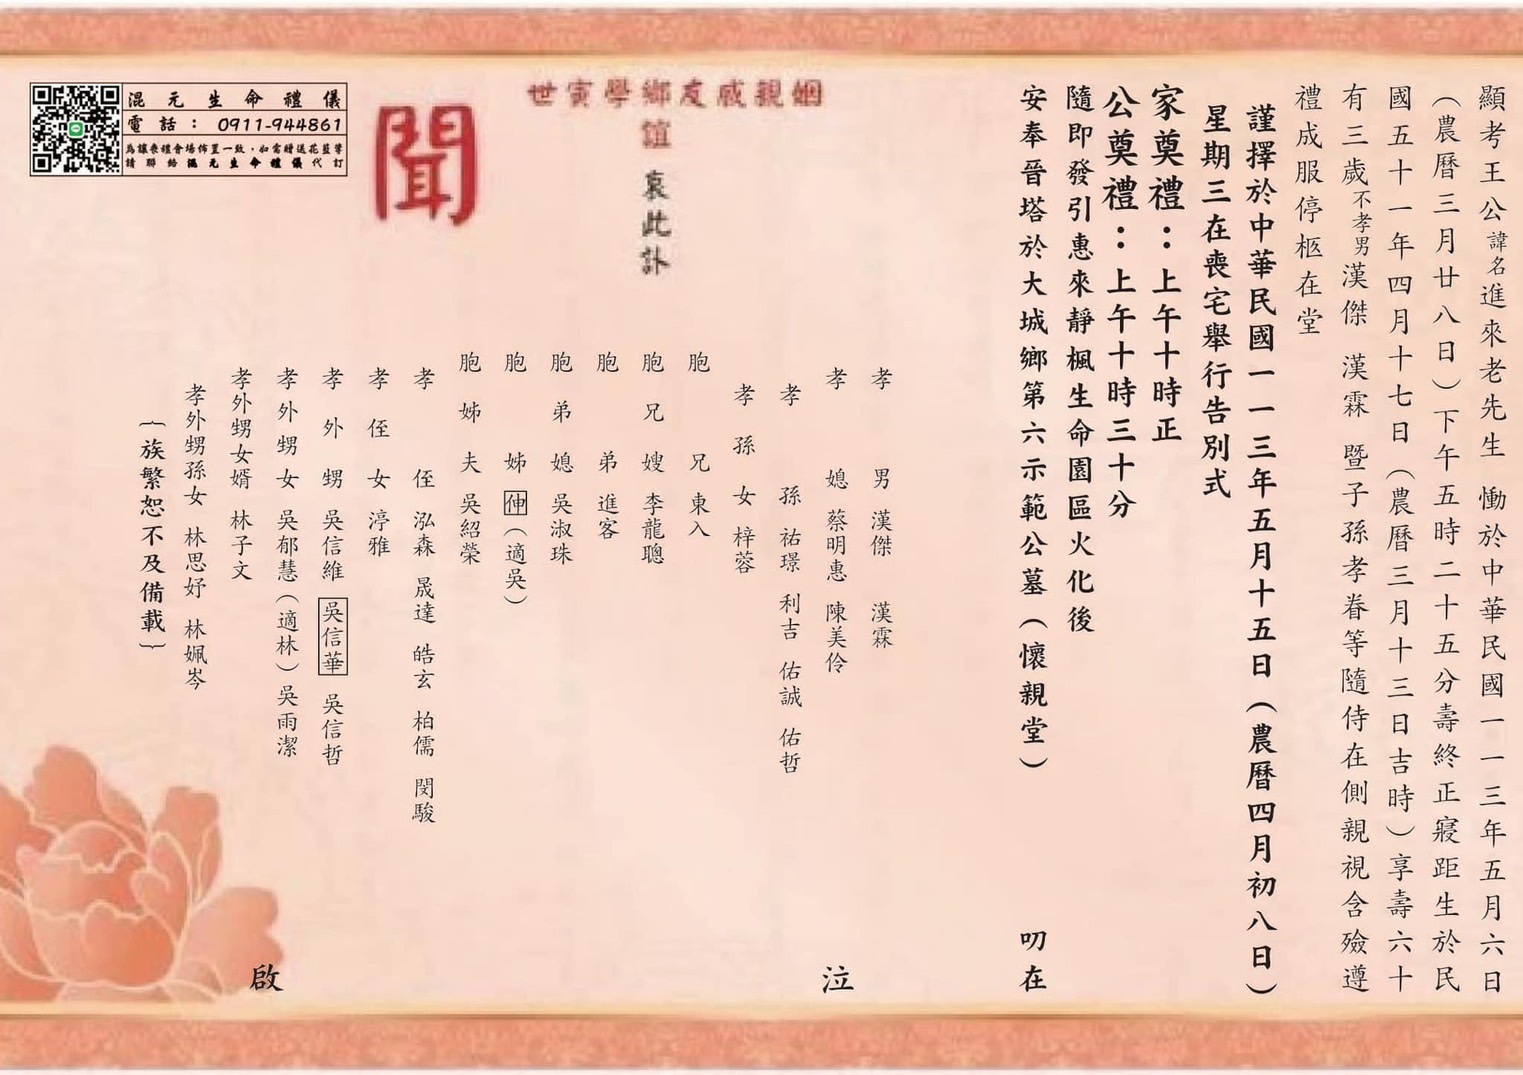 顯考王公諱名進來老先生 慟於中華民國一一三年五月六日
（農曆三月廿八日）下午五時二十五分壽終正寢距生於民
國五十一年四月十七日（農曆三月十三日吉時）享壽六十
有三歲不孝男漢傑 漢霖 暨子孫孝眷等隨侍在側親視含殮遵
禮成服停柩在堂
謹擇於中華民國一一三年五月十五日（農曆四月初八日）
星期三在喪宅舉行告別式
家奠禮：上午十時正
公奠禮：上午十時三十分
隨即發引惠來靜楓生命園區火化後
安奉晉塔於大城鄉第六示範公墓（懷親堂） 叨在
姻親戚友鄉學寅世
誼 哀此訃
聞
孝男 漢傑 漢霖
孝媳 蔡明惠 陳美伶
孝孫 祐璟 利吉 佑誠 佑哲
孝孫女 梓蓉
胞兄 東入
胞兄嫂 李龍聰
胞弟 進客
胞弟媳 吳淑珠
胞姊 伸（適吳）
胞姊夫 吳紹榮
孝侄 泓森 晟達 皓玄 柏儒 閔駿
孝侄女 渟雅
孝外甥 吳信維 吳信華 吳信哲
孝外甥女 吳郁慧（適林）吳雨潔
孝外甥女婿 林子文
孝外甥孫女 林思妤 林姵岑
｛族繁恕不及備載｝
泣
啟
混元生命禮儀
電話：0911-944861
為讓喪禮會場佈置一致，如需贈送花籃等
請聯給混元生命禮儀代訂